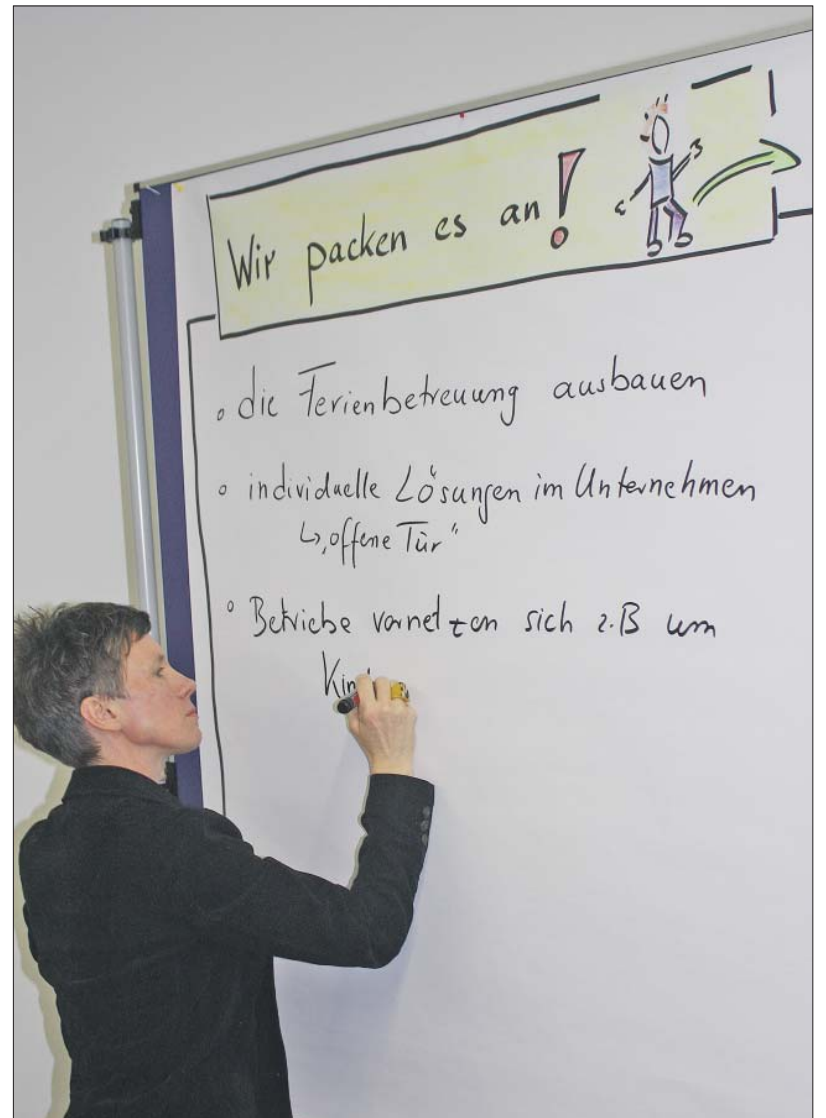 Wir packen es an!
• die Ferienbetreuung ausbauen
• individuelle Lösungen im Unternehmen
↳ „offene Tür"
• Betriebe vernetzen sich z.B um